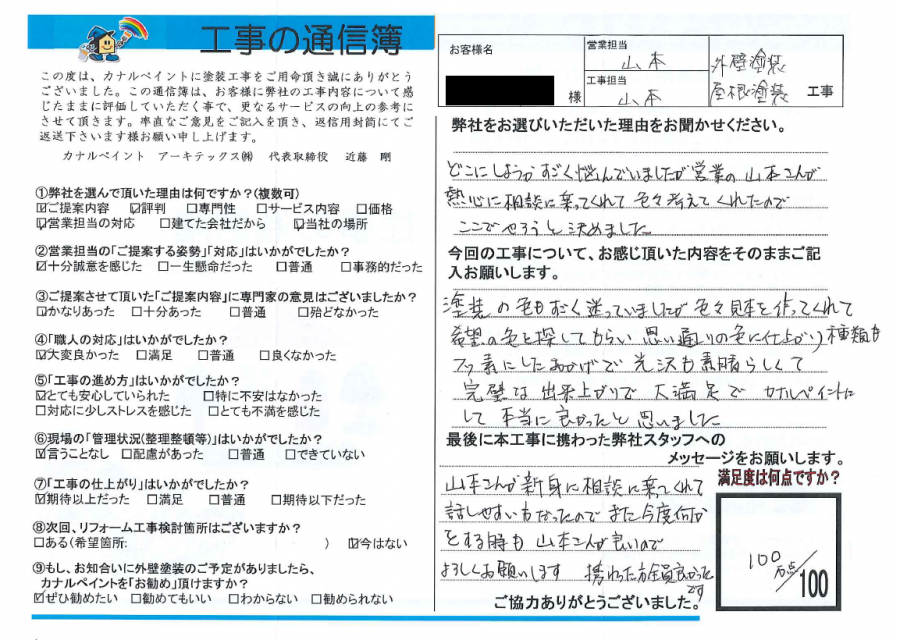 工事の通信簿
この度は、カナルペイントに塗装工事をご用命頂き誠にありがとう
ございました。この通信簿は、お客様に弊社の工事内容について感
じたままに評価していただく事で、更なるサービスの向上の参考に
させて頂きます。率直なご意見をご記入を頂き、返信用封筒にてご
返送下さいます様お願い申し上げます。
カナルペイント アーキテックス㈱ 代表取締役 近藤 剛
①弊社を選んで頂いた理由は何ですか？(複数可)
☑ご提案内容 ☑評判 □専門性 □サービス内容 □価格
☑営業担当の対応 □建てた会社だから ☑当社の場所
②営業担当の「ご提案する姿勢」「対応」はいかがでしたか？
☑十分誠意を感じた □一生懸命だった □普通 □事務的だった
③ご提案させて頂いた「ご提案内容」に専門家の意見はございましたか？
☑かなりあった □十分あった □普通 □殆どなかった
④「職人の対応」はいかがでしたか？
☑大変良かった □満足 □普通 □良くなかった
⑤「工事の進め方」はいかがでしたか？
☑とても安心していられた □特に不安はなかった
□対応に少しストレスを感じた □とても不満を感じた
⑥現場の「管理状況(整理整頓等)」はいかがでしたか？
☑言うことなし □配慮があった □普通 □できていない
⑦「工事の仕上がり」はいかがでしたか？
☑期待以上だった □満足 □普通 □期待以下だった
⑧次回、リフォーム工事検討箇所はございますか？
□ある(希望箇所: ) ☑今はない
⑨もし、お知合いに外壁塗装のご予定がありましたら、
カナルペイントを「お勧め」頂けますか？
☑ぜひ勧めたい □勧めてもいい □わからない □勧められない
お客様名
様
営業担当
山本
工事担当
山本
外壁塗装
屋根塗装 工事
弊社をお選びいただいた理由をお聞かせください。
どこにしようかすごく悩んでいましたが営業の山本さんが
熱心に相談に乗ってくれて色々考えてくれたので
ここでやろうと決めました
今回の工事について、お感じ頂いた内容をそのままご記
入お願いします。
塗装の色もすごく迷っていましたが色々見本を作ってくれて
希望の色を探してもらい思い通りの色に仕上がり種類も
フッ素にしたおかげで光沢も素晴らしくて
完璧な出来上がりで大満足でカナルペイントに
して本当に良かったと思いました
最後に本工事に携わった弊社スタッフへの
メッセージをお願いします。
山本さんが親身に相談に乗ってくれて
話しやすいもなったのでまた今度何か
をする時も山本さんが良いので
よろしくお願いします 携わった方全員良かった
です
満足度は何点ですか？
100点／100
ご協力ありがとうございました。